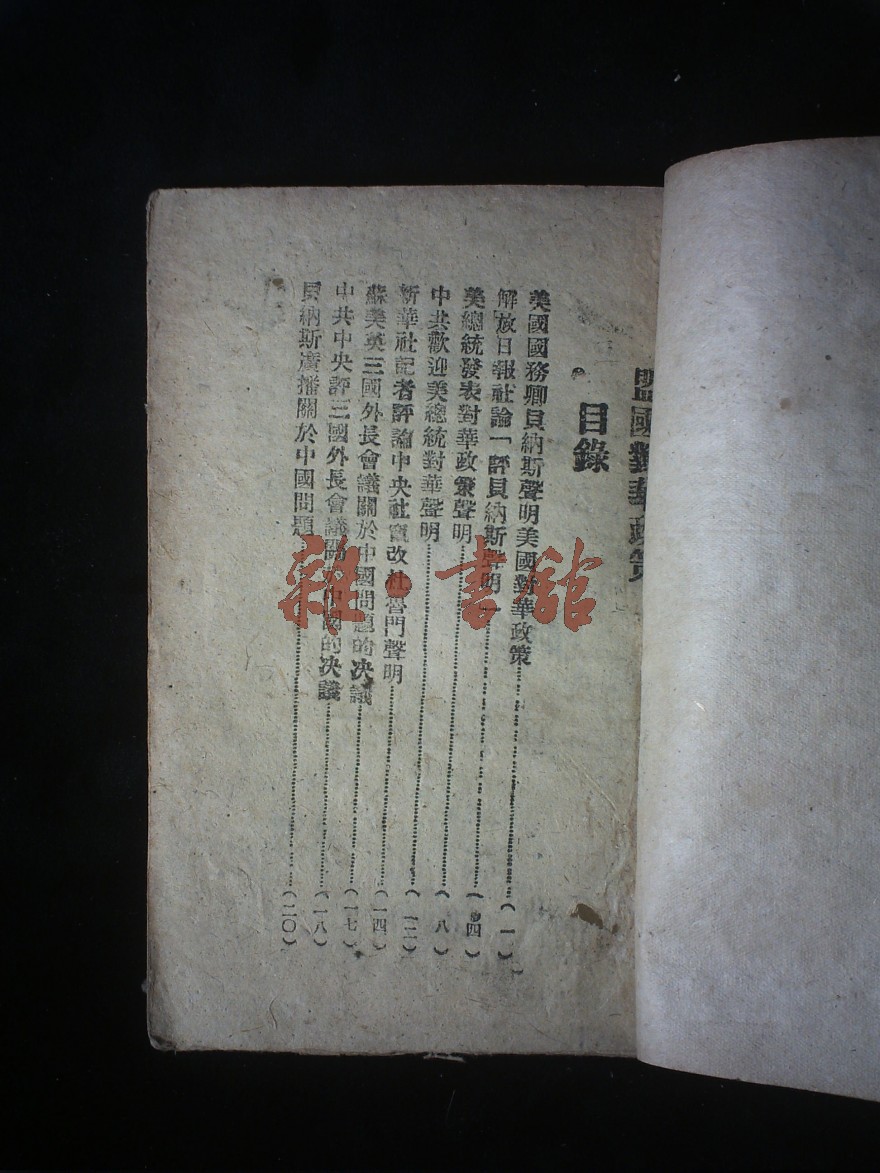 盟國對華政策
目錄
美國國務卿貝納斯聲明美國對華政策……（一）
解放日報社論「評貝納斯聲明」……（四）
美總統發表對華政策聲明……（八）
中共歡迎美總統對華聲明……（一二）
新華社記者評論中央社竄改杜魯門聲明……（一四）
蘇美英三國外長會議關於中國問題的决議……（一七）
中共中央評三國外長會議關於中國的决議……（一八）
貝納斯廣播關於中國問題……（二〇）
雜·書館